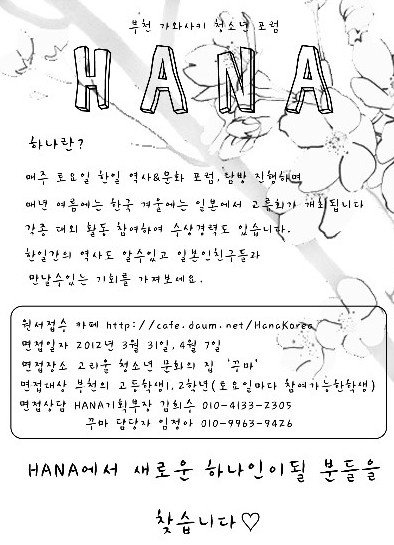 부천 가와사키 청소년 포럼
HANA
하나란?
매주 토요일 한일 역사&문화 포럼, 탐방 진행하며
매년 여름에는 한국 겨울에는 일본에서 교류회가 개최됩니다
각종 대외 활동 참여하여 수상경력도 있습니다.
한일간의 역사도 알수있고 일본인친구들과
만날수있는 기회를 가져보세요.
원서접수 카페 http://cafe.daum.net/HanaKorea
면접일자 2012년 3월 31일, 4월 7일
면접장소 고리울 청소년 문화의 집 '꾸마'
면접대상 부천의 고등학생1, 2학년(토요일마다 참여가능한학생)
면접상담 HANA기획부장 김희수 010-4133-2305
꾸마 담당자 임정아 010-9963-9426
HANA에서 새로운 하나인이될 분들을
찾습니다♡